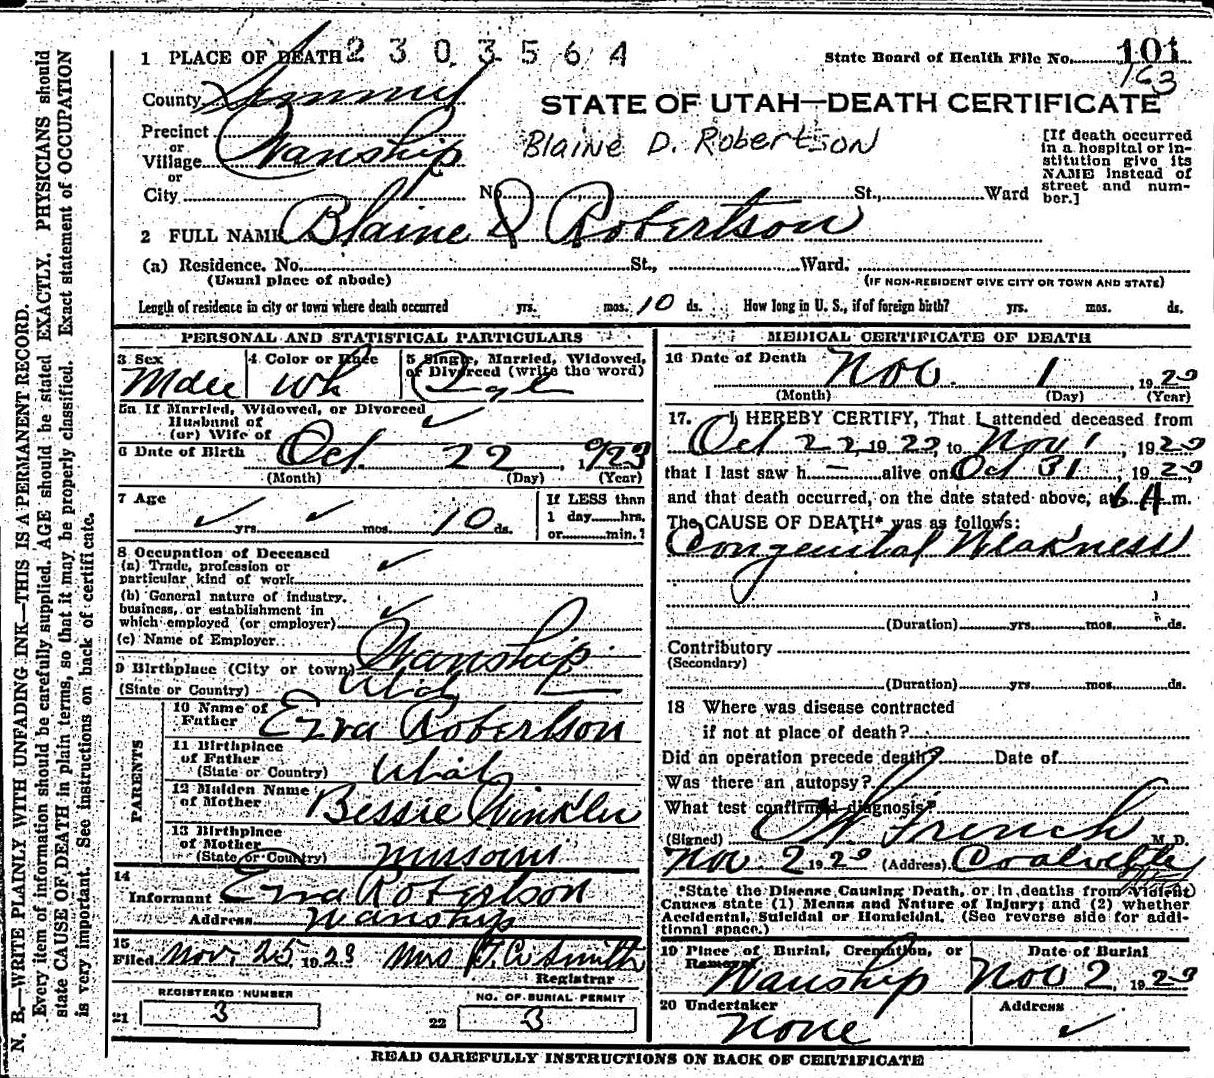 1 PLACE OF DEATH 2303564
State Board of Health File No. 101
163
County Summit
STATE OF UTAH—DEATH CERTIFICATE
Precinct
or
Village Wanship
or
City
Blaine D. Robertson
[If death occurred
in a hospital or in-
stitution give its
NAME instead of
street and num-
ber.]
No. St., Ward
2 FULL NAME Blaine D Robertson
(a) Residence. No. St., Ward.
(Usual place of abode) (IF NON-RESIDENT GIVE CITY OR TOWN AND STATE)
Length of residence in city or town where death occurred yrs. mos. 10 ds. How long in U. S., if of foreign birth? yrs. mos. ds.
PERSONAL AND STATISTICAL PARTICULARS
3 Sex Male
4 Color or Race Wh
5 Single, Married, Widowed,
or Divorced (write the word)
5a If Married, Widowed, or Divorced
Husband of
(or) Wife of ✓
6 Date of Birth Oct. 22, 1923
(Month) (Day) (Year)
7 Age ✓ yrs. ✓ mos. 10 ds.
If LESS than
1 day hrs.
or min.?
8 Occupation of Deceased
(a) Trade, profession or
particular kind of work ✓
(b) General nature of industry,
business, or establishment in
which employed (or employer) ✓
(c) Name of Employer
9 Birthplace (City or town) Wanship
(State or Country) Utah
PARENTS
10 Name of
Father Ezra Robertson
11 Birthplace
of Father
(State or Country) Utah
12 Maiden Name
of Mother Bessie Winkler
13 Birthplace
of Mother
(State or Country) Missouri
14
Informant Ezra Robertson
Address Wanship
15
Filed Nov. 25, 1923 Mrs Smith
Registrar
REGISTERED NUMBER
21 3
NO. OF BURIAL PERMIT
22 3
MEDICAL CERTIFICATE OF DEATH
16 Date of Death Nov. 1, 1923
(Month) (Day) (Year)
17. I HEREBY CERTIFY, That I attended deceased from
Oct 22, 1923 to Nov 1, 1923
that I last saw h — alive on Oct 31, 1923
and that death occurred, on the date stated above, at 6 A m.
The CAUSE OF DEATH* was as follows:
Congenital Weakness
(Duration) yrs. mos. ds.
Contributory
(Secondary)
(Duration) yrs. mos. ds.
18 Where was disease contracted
if not at place of death?
Did an operation precede death? Date of
Was there an autopsy?
What test confirmed diagnosis?
(Signed) French M D.
Nov 2 1923 (Address) Coalville
*State the Disease Causing Death, or in deaths from Violent
Causes state (1) Means and Nature of Injury; and (2) whether
Accidental, Suicidal or Homicidal. (See reverse side for addi-
tional space.)
19 Place of Burial, Cremation, or
Removal Wanship
Date of Burial
Nov 2, 1923
20 Undertaker
None
Address
✓
READ CAREFULLY INSTRUCTIONS ON BACK OF CERTIFICATE
N. B.—WRITE PLAINLY WITH UNFADING INK—THIS IS A PERMANENT RECORD.
Every item of information should be carefully supplied. AGE should be stated EXACTLY. PHYSICIANS should
state CAUSE OF DEATH in plain terms, so that it may be properly classified. Exact statement of OCCUPATION
is very important. See instructions on back of certificate.